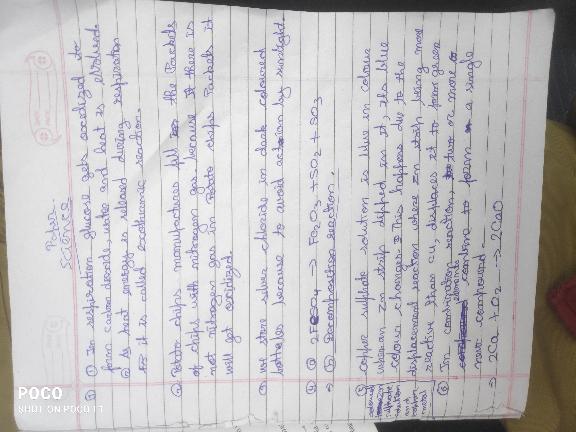 Poter
Science
① ① In respiration glucose gets oxidized to
form carbon dioxide, water and heat is evolved.
② As heat energy is relased during respiration
it is called exothermic reaction.
② Potato chips manufactures fill the Packets
of chips with nitrogen gas because If there is
not nitrogen gas in Potato chips Packets it
will get oxidized.
③ we store silver chloride in dark coloured
bottles because to avoid action by sunlight.
④ ① 2FeSO4 → Fe2O3 + SO2 + SO3
→ ② Decomposition reaction.
⑤ copper sulphate solution is blue in colour
when an Zn strip dipped in it, its blue
colour changes. This happens due to the
displacement reaction where Zn strip being more
reactive than cu, displaces it to form green
sulphate
solution
and
copper
metal
⑥ In combination reaction, two or more
elements combine to form a single
new compound.
→ 2Ca + O2 → 2CaO
POCO
SHOT ON POCO F1